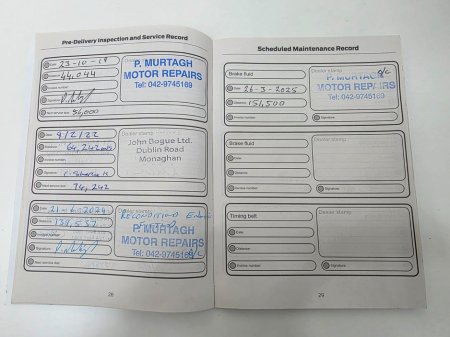 Pre-Delivery Inspection and Service Record
Date 23-10-19
44,044
Invoice number
Signature
Next service due 56,000
Dealer stamp
P. MURTAGH
MOTOR REPAIRS
Tel: 042-9745169
Date 9/2/22
Distance 64,242
Invoice number
Signature
Next service due 74,242
Dealer stamp
John Bogue Ltd.
Dublin Road
Monaghan
Date 21-6-2024
Distance
Invoice number
Signature
Next service due
RECONDITIONED
P. MURTAGH
MOTOR REPAIRS
Tel: 042-9745169
28
Scheduled Maintenance Record
Brake fluid
Date 26-3-2025
Distance 151,500
Invoice number
Dealer stamp
P. MURTAGH
MOTOR REPAIRS
Tel: 042-9745169
Signature
Brake fluid
Date
Distance
Invoice number
Dealer stamp
Signature
Timing belt
Date
Distance
Invoice number
Dealer stamp
Signature
29